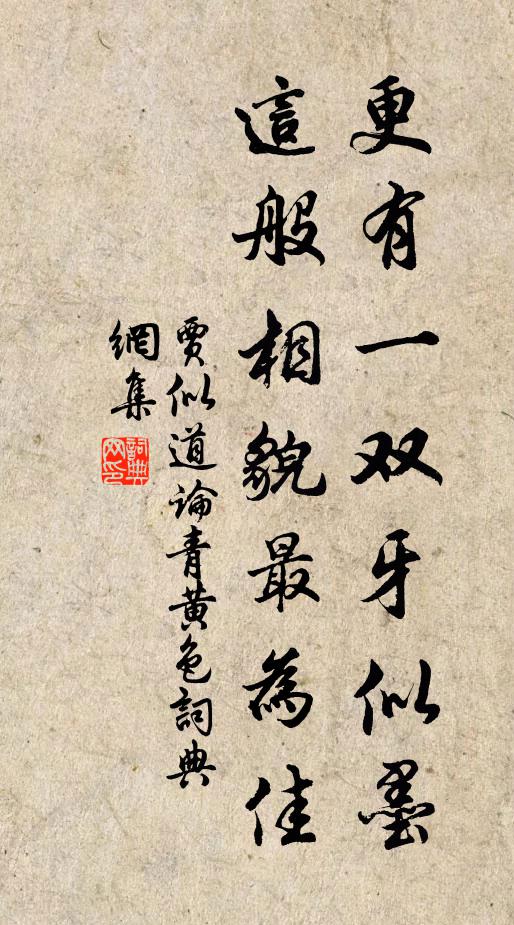 更有一双牙似墨
這般相貌最為佳
賈似道論青黃色詞典
網集
詞典
网印